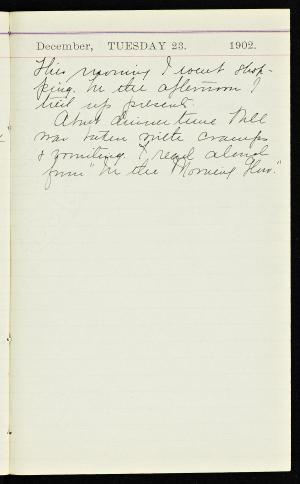 December, TUESDAY 23. 1902.
This morning I went shop-
ping. In the afternoon I
tied up presents.
About dinner time Nell
was taken with cramps
& vomiting. I read aloud
from "In the Morning Glow."